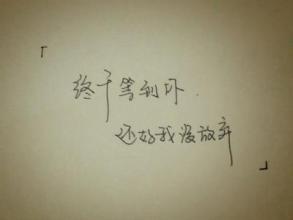 「终于等到你.
还好我没放弃」